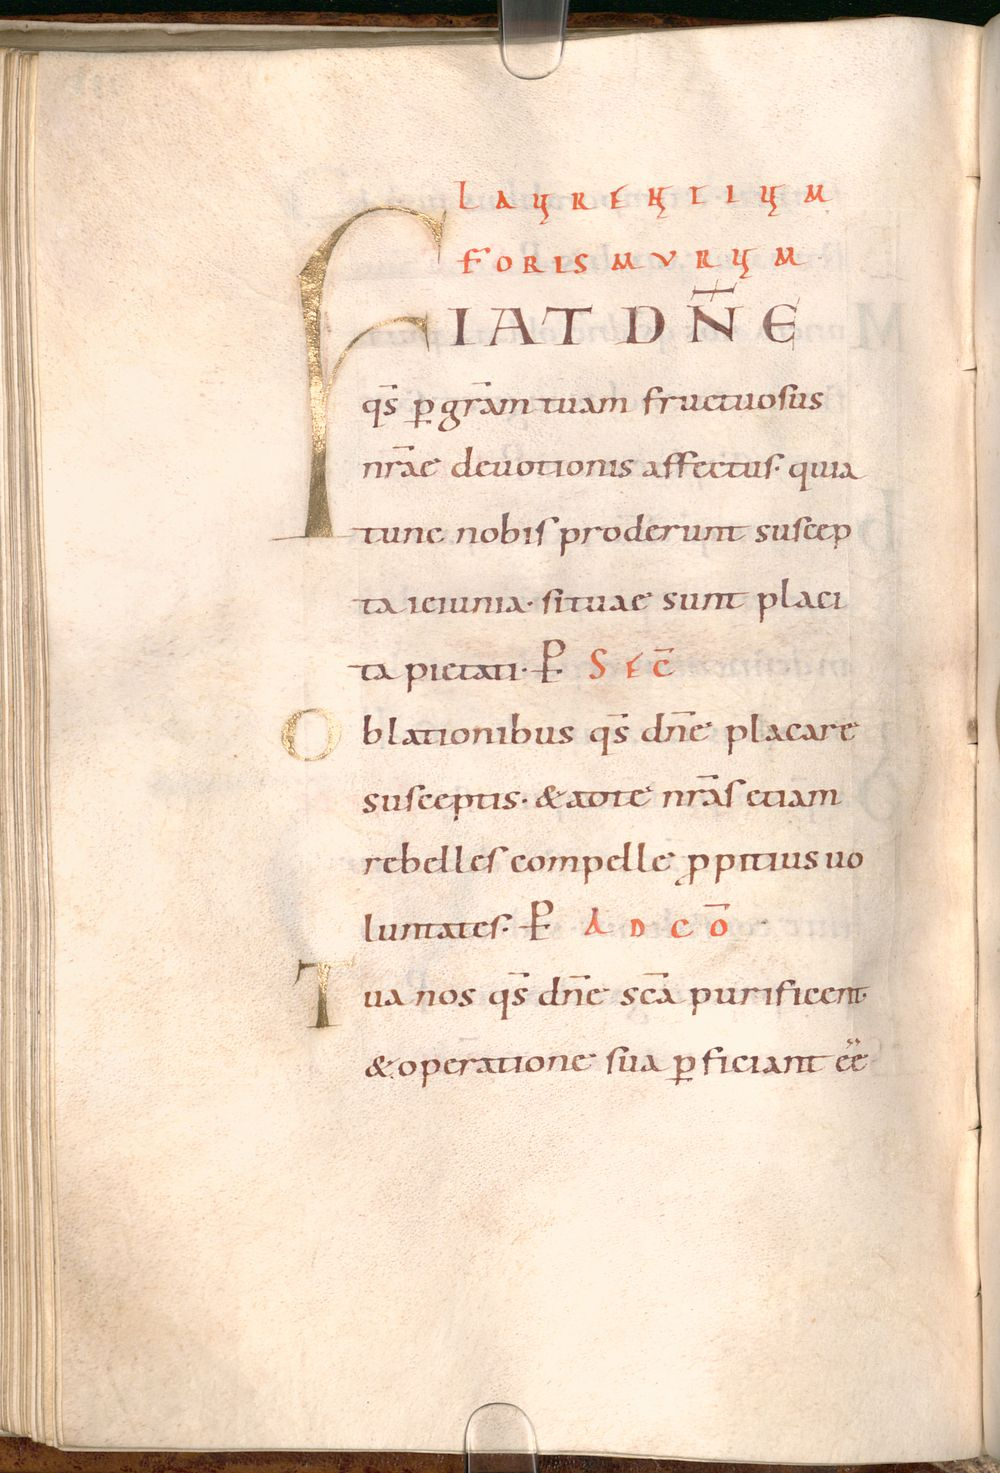 LAURENTIUM
FORIS MVRUM
FIAT DN̄E
qs̄ ꝑ gr̄am tuam fructuoſus
nr̄ae deuotionis affectuſ· quia
tunc nobiſ proderunt suſcep
ta ieiunia· ſi tuae sunt placi
ta pietati· P̵ SEC̄
Oblationibus qs̄ dn̄e placare
suſceptis· & ad te nr̄aſ etiam
rebelleſ compelle ꝓpitius uo
luntateſ· P̵ AD CŌ
Tua nos qs̄ dn̄e sc̄a purificent·
& operatione ſua ꝑficiant ēē